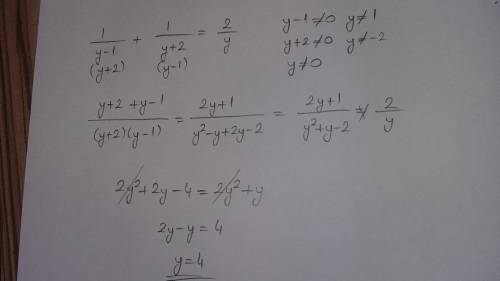 1/(y-1) + 1/(y+2) = 2/y
(y+2) (y-1)
y-1≠0 y≠1
y+2≠0 y≠-2
y≠0
(y+2+y-1)/((y+2)(y-1)) = (2y+1)/(y²-y+2y-2) = (2y+1)/(y²+y-2) = 2/y
2y²+2y-4 = 2y²+y
2y-y = 4
y=4